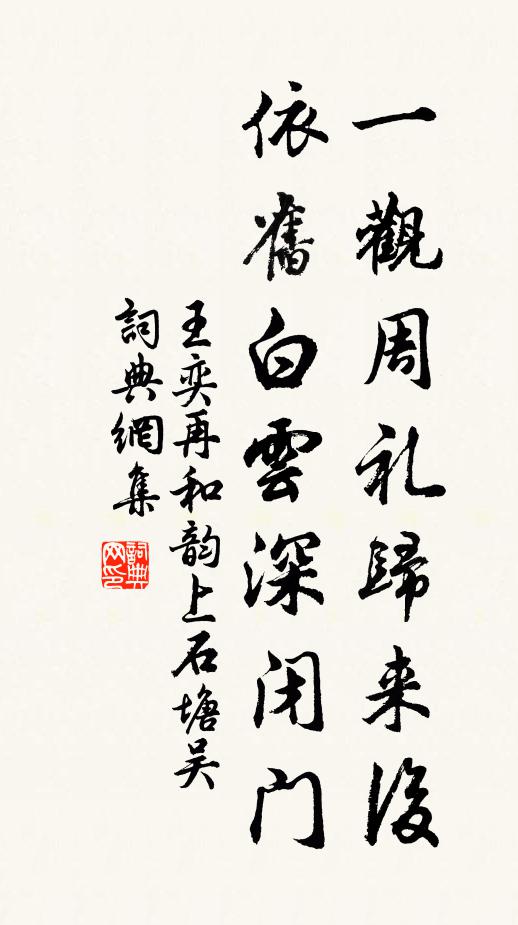 一觀周礼歸来後
依舊白雲深闭門
王奕再和韵上石塘吴
詞典網集
詞典网印